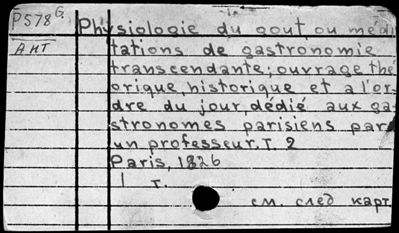 P578 G.
АНТ
Physiologie du gout ou médi
tations de gastronomie
transcendante; ouvrage thé
orique, historique et a l'or-
dre du jour, dédié aux ga-
stronomes parisiens par
un professeur. T. 2
Paris, 1826
1 т.
см. след карт.